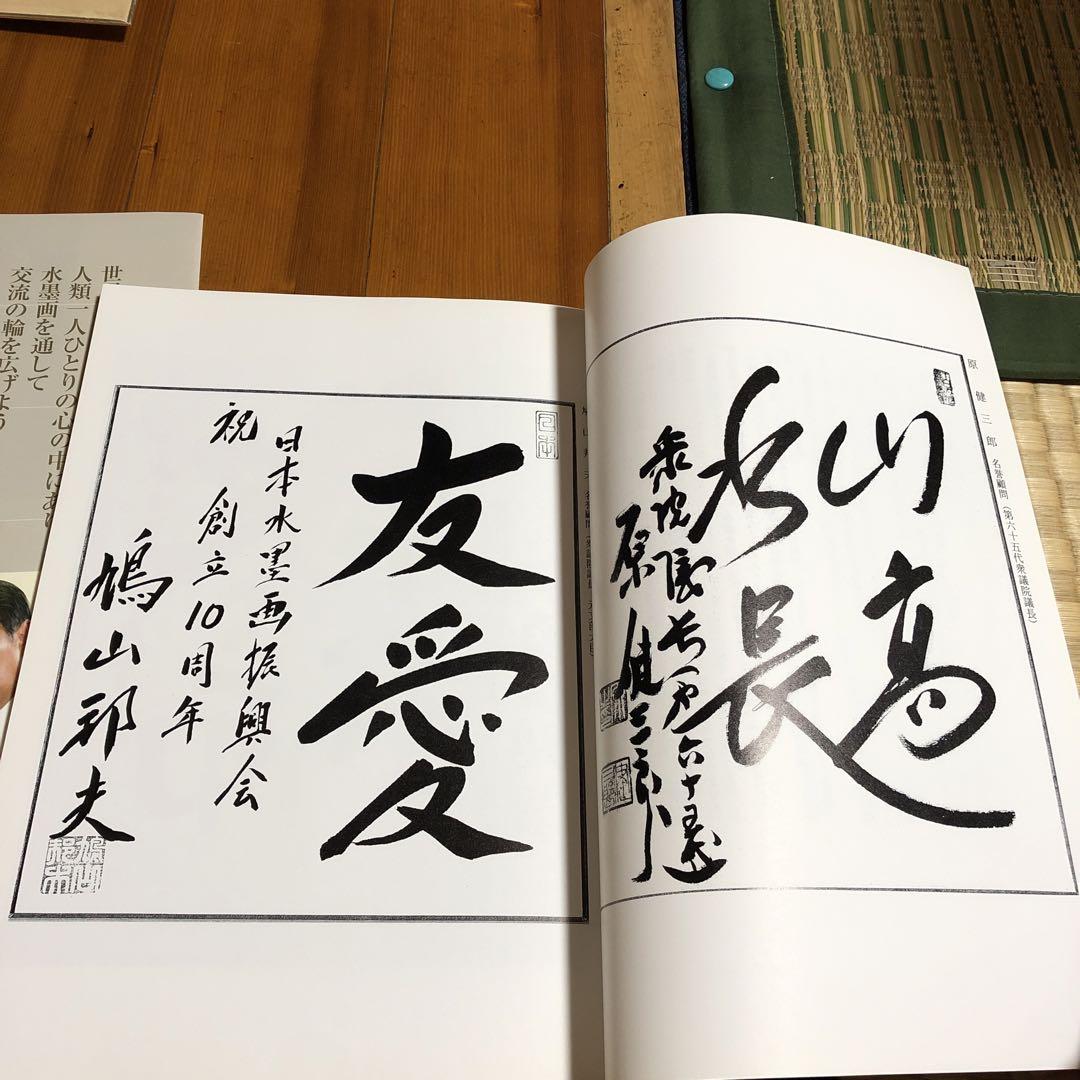 原健三郎 名誉顧問（第六十五代衆議院議長）
山高
水長
原健三郎
友愛
日本水墨画振興会
祝 創立10周年
鳩山邦夫
人類一人ひとりの心の中にあ
水墨画を通して
交流の輪を広げよう